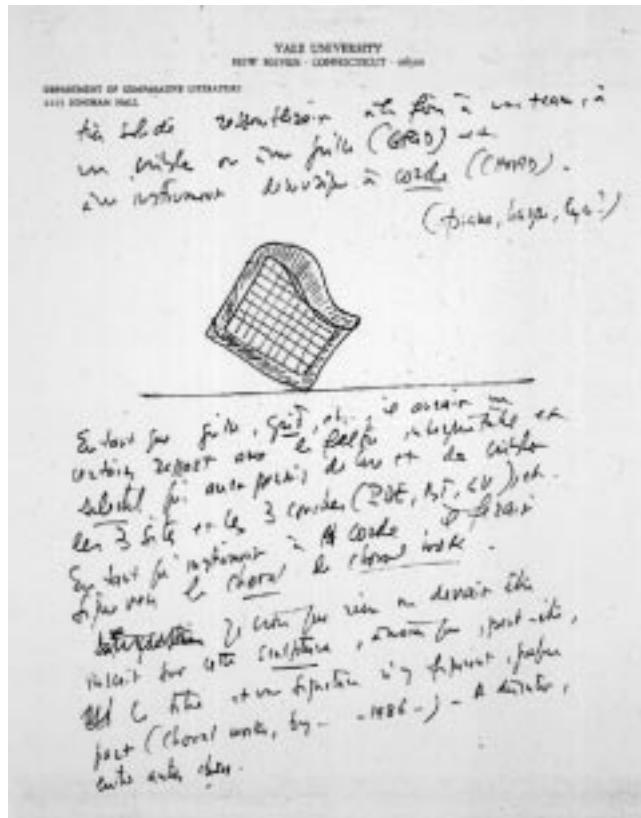 YALE UNIVERSITY
NEW HAVEN · CONNECTICUT · 06520
DEPARTMENT OF COMPARATIVE LITERATURE
HALL
très solide ressemblerait à la fois à une trame, à
un crible ou à une grille (GRID) et
à un instrument de musique à corde (CHORD).
(piano, harpe, lyre?)
En tant que grille, grid, etc., il aurait un
certain rapport avec le filtre
les 3 sites et les 3 couches (PDE, BT, LV), etc.
En tant qu'instrument à corde, il ferait
signe vers le choral de choral work.
Je crois que rien ne devrait être
inscrit sur cette sculpture, à moins que, peut-être,
le titre et une signature n'y figurent, quelque
part (Choral work, by – – 1986 –) – A discuter,
entre autres choses.